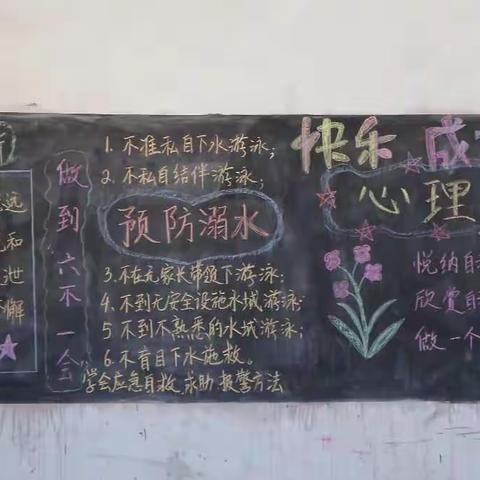 远
和
泄
解
做到六不一会
1. 不准私自下水游泳;
2. 不私自结伴游泳;
预防溺水
3. 不在无家长带领下游泳;
4. 不到无安全设施水域游泳
5 不到不熟悉的水域游泳;
6. 不盲目下水施救。
学会应急自救.求助.报警方法
快乐 成
心理
悦纳自
欣赏自
做一个